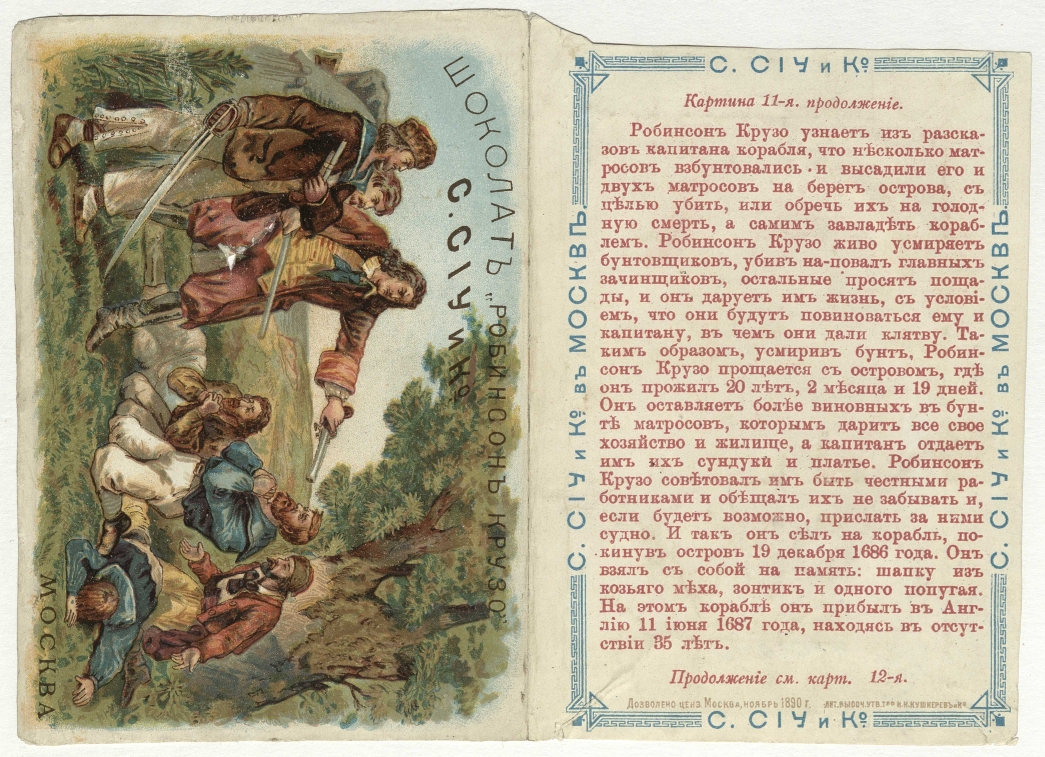 ШОКОЛАТЪ „РОБИНСОНЪ КРУЗО“
С. СІУ и Ко
МОСКВА
С. СІУ и Ко
С. СІУ и Ко въ МОСКВѢ
С. СІУ и Ко въ МОСКВѢ
Картина 11-я. продолженіе.
Робинсонъ Крузо узнаетъ изъ разска-
зовъ капитана корабля, что нѣсколько мат-
росовъ взбунтовались и высадили его и
двухъ матросовъ на берегъ острова, съ
цѣлью убить, или обречь ихъ на голод-
ную смерть, а самимъ завладѣть кораб-
лемъ. Робинсонъ Крузо живо усмиряетъ
бунтовщиковъ, убивъ на-повалъ главныхъ
зачинщиковъ, остальные просятъ поща-
ды, и онъ даруетъ имъ жизнь, съ услові-
емъ, что они будутъ повиноваться ему и
капитану, въ чемъ они дали клятву. Та-
кимъ образомъ, усмиривъ бунтъ, Робин-
сонъ Крузо прощается съ островомъ, гдѣ
онъ прожилъ 20 лѣтъ, 2 мѣсяца и 19 дней.
Онъ оставляетъ болѣе виновныхъ въ бун-
тѣ матросовъ, которымъ даритъ все свое
хозяйство и жилище, а капитанъ отдаетъ
имъ ихъ сундуки и платье. Робинсонъ
Крузо совѣтовалъ имъ быть честными ра-
ботниками и обѣщалъ ихъ не забывать и,
если будетъ возможно, прислать за ними
судно. И такъ онъ сѣлъ на корабль, по-
кинувъ островъ 19 декабря 1686 года. Онъ
взялъ съ собой на память: шапку изъ
козьяго мѣха, зонтикъ и одного попугая.
На этомъ кораблѣ онъ прибылъ въ Анг-
лію 11 іюня 1687 года, находясь въ отсут-
ствіи 35 лѣтъ.
Продолженіе см. карт. 12-я.
Дозволено ценз. Москва, ноябрь 1890 г. Лит. высоч. утв. Т-во И. Н. Кушнеревъ и Ко
С. СІУ и Ко